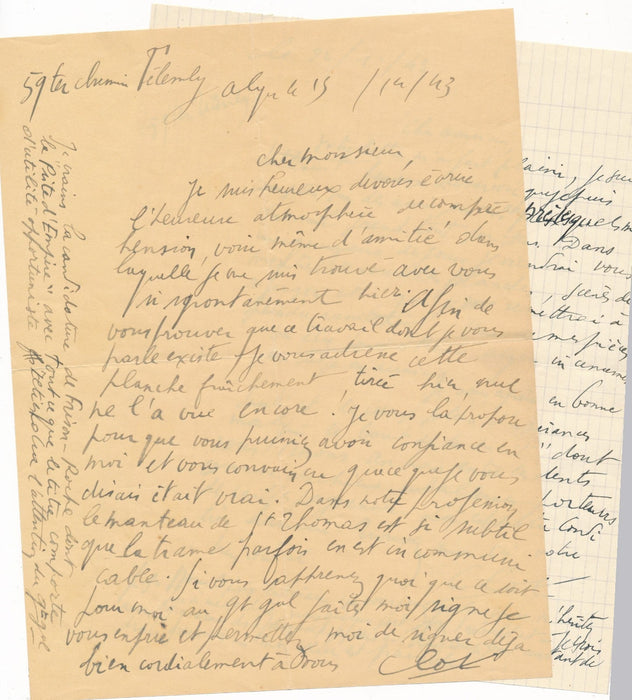 59 ter chemin Télemly Alger le 15 /12/43
cher monsieur,
Je suis heureux de vous écrire
l'heureuse atmosphère de compré
hension, voire même d'amitié dans
laquelle je me suis trouvé avec vous
si spontanément hier. Afin de
vous prouver que ce travail dont je vous
parle existe je vous adresse cette
planche fraîchement tirée hier, nul
ne l'a vue encore! Je vous la propose
pour que vous puissiez avoir confiance en
moi et vous convaincre que ce que je vous
disais était vrai. Dans notre profession
le manteau de St Thomas est si subtil
que la trame parfois en est incommuni
cable. Si vous apprenez quoi que ce soit
pour moi au gt gal faites moi signe je
vous en prie et permettez moi de signer déjà
bien cordialement à vous
Je crains la candidature de Frison-Roche dont
la "Piste d'Empire" avec tout ce que le titre comporte
d'utilité opportuniste l'attention du
je suis
que je puis
Dans
vous
mes pièces
en bonne
dont